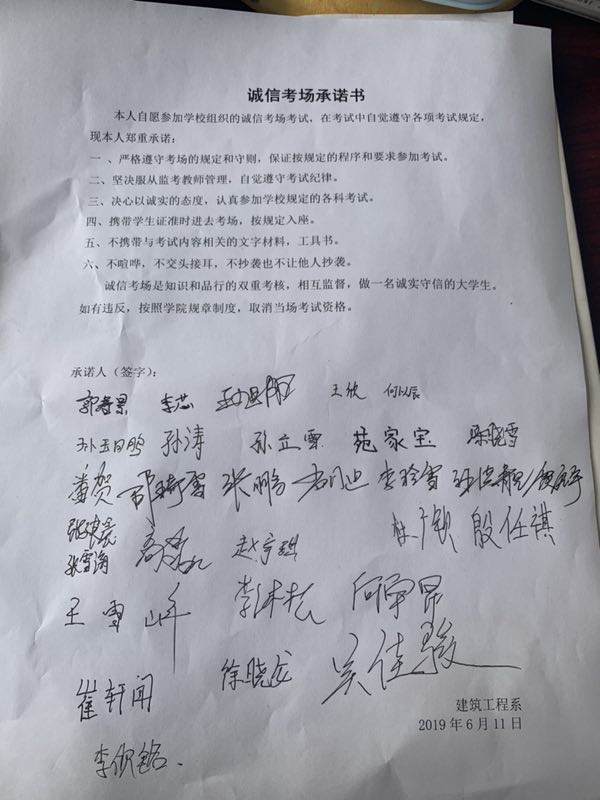 诚信考场承诺书
本人自愿参加学校组织的诚信考场考试，在考试中自觉遵守各项考试规定，
现本人郑重承诺：
一 、严格遵守考场的规定和守则，保证按规定的程序和要求参加考试。
二、坚决服从监考教师管理，自觉遵守考试纪律。
三、决心以诚实的态度，认真参加学校规定的各科考试。
四、携带学生证准时进去考场，按规定入座。
五、不携带与考试内容相关的文字材料，工具书。
六、不喧哗，不交头接耳，不抄袭也不让他人抄袭。
诚信考场是知识和品行的双重考核，相互监督，做一名诚实守信的大学生。
如有违反，按照学院规章制度，取消当场考试资格。
承诺人（签字）：
李芯 王欣 何以辰
孙玉鹏 孙涛 孙立雪 苑家宝 陈晓雪
张鹏 李玲雪
殷任祺
王雪峰
崔轩闻 徐晓龙 吴佳骏
建筑工程系
2019 年 6 月 11 日
李欣铭.